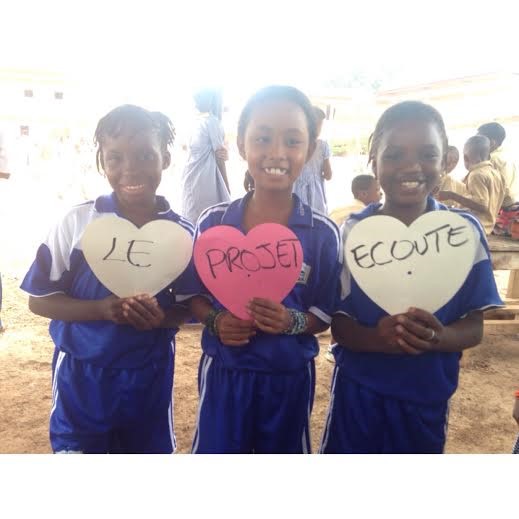 LE PROJET ECOUTE